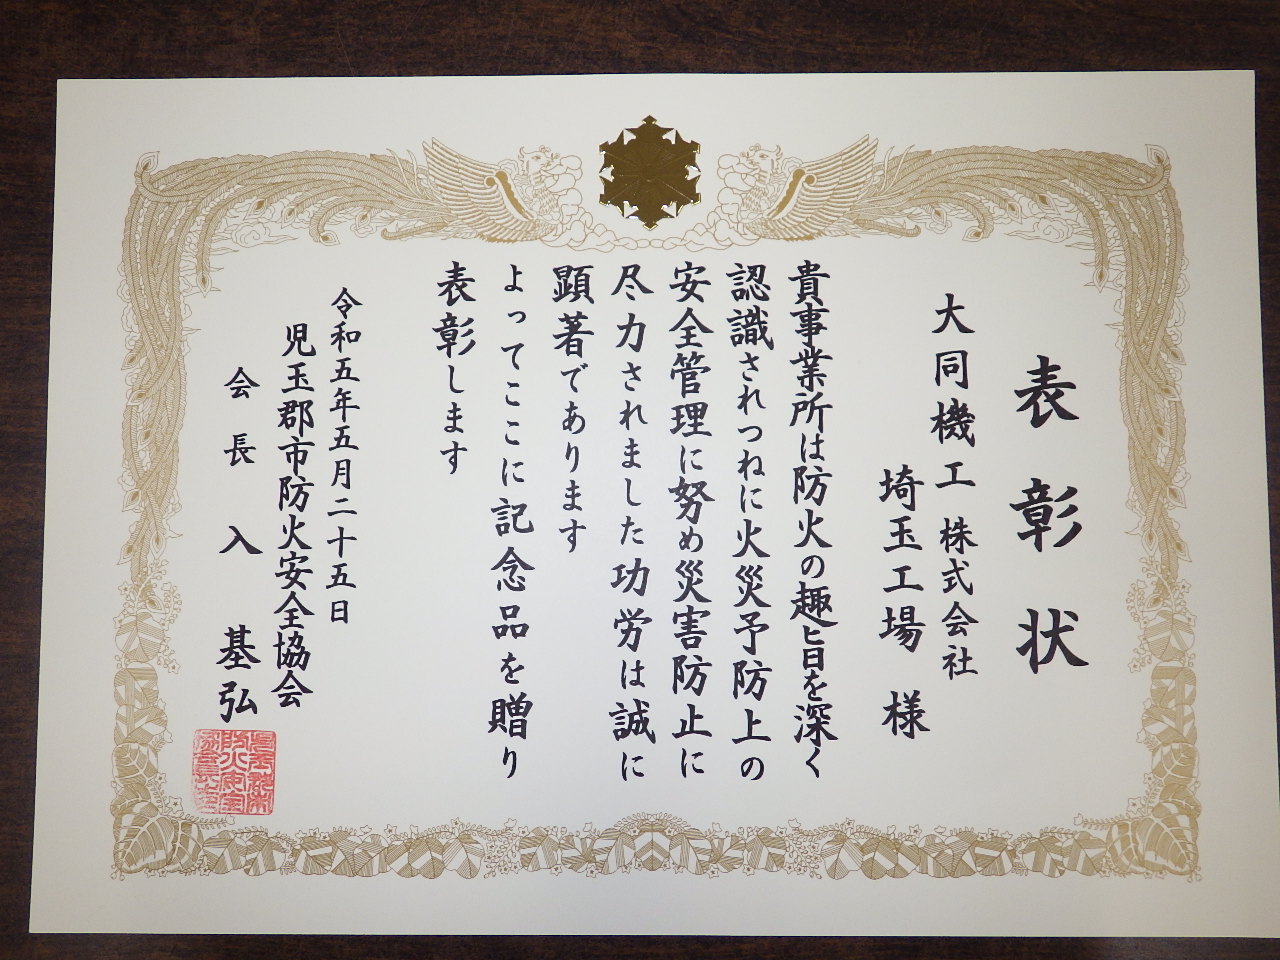 表彰状
大同機工株式会社
埼玉工場 様
貴事業所は防火の趣旨を深く
認識されつねに火災予防上の
安全管理に努め災害防止に
尽力されました功労は誠に
顕著であります
よってここに記念品を贈り
表彰します
令和五年五月二十五日
児玉郡市防火安全協会
会長 入 基弘